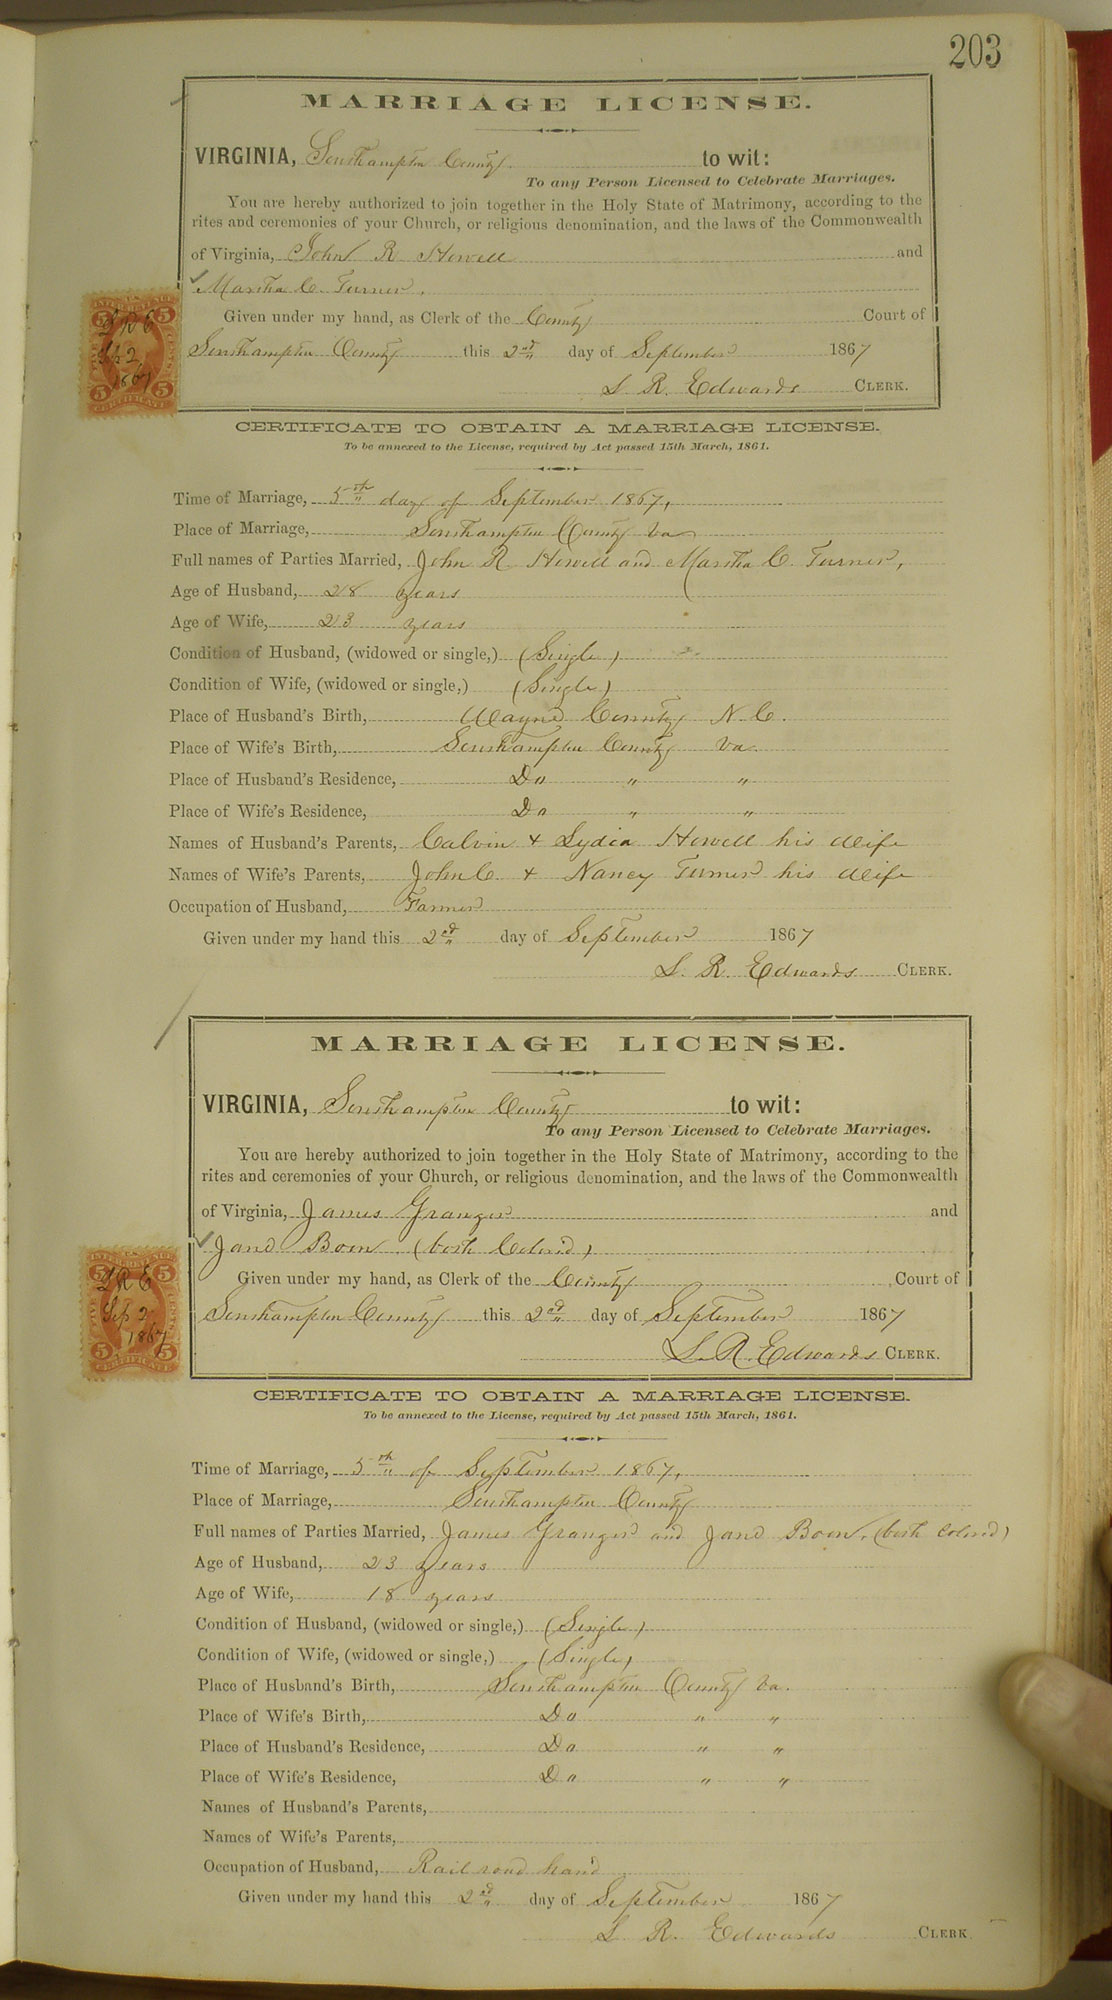 203
MARRIAGE LICENSE.
VIRGINIA, Southampton County to wit:
To any Person Licensed to Celebrate Marriages.
You are hereby authorized to join together in the Holy State of Matrimony, according to the
rites and ceremonies of your Church, or religious denomination, and the laws of the Commonwealth
of Virginia, John R Howell and
Martha C. Turner,
Given under my hand, as Clerk of the County Court of
Southampton County this 2nd day of September 1867
L. R. Edwards CLERK.
5 5
L R E
2
1867
5 5
CERTIFICATE
CERTIFICATE TO OBTAIN A MARRIAGE LICENSE.
To be annexed to the License, required by Act passed 15th March, 1861.
Time of Marriage, 5th day of September 1867,
Place of Marriage, Southampton County Va
Full names of Parties Married, John R Howell and Martha C. Turner,
Age of Husband, 28 years
Age of Wife, 23 years
Condition of Husband, (widowed or single,) (Single)
Condition of Wife, (widowed or single,) (Single)
Place of Husband's Birth, Wayne County N.C.
Place of Wife's Birth, Southampton County Va.
Place of Husband's Residence, Do " "
Place of Wife's Residence, Do " "
Names of Husband's Parents, Calvin + Lydia Howell his Wife
Names of Wife's Parents, John C. + Nancy Turner his Wife
Occupation of Husband, Farmer
Given under my hand this 2nd day of September 1867
L. R. Edwards CLERK.
MARRIAGE LICENSE.
VIRGINIA, Southampton County to wit:
To any Person Licensed to Celebrate Marriages.
You are hereby authorized to join together in the Holy State of Matrimony, according to the
rites and ceremonies of your Church, or religious denomination, and the laws of the Commonwealth
of Virginia, James Granger and
Jane Boon (both Colored)
Given under my hand, as Clerk of the County Court of
Southampton County this 2nd day of September 1867
L. R. Edwards CLERK.
5 5
L R E
Sep 2
1867
5 5
CERTIFICATE
CERTIFICATE TO OBTAIN A MARRIAGE LICENSE.
To be annexed to the License, required by Act passed 15th March, 1861.
Time of Marriage, 5th of September 1867,
Place of Marriage, Southampton County
Full names of Parties Married, James Granger and Jane Boon, (both colored)
Age of Husband, 23 years
Age of Wife, 18 years
Condition of Husband, (widowed or single,) (Single)
Condition of Wife, (widowed or single,) (Single)
Place of Husband's Birth, Southampton County Va.
Place of Wife's Birth, Do " "
Place of Husband's Residence, Do " "
Place of Wife's Residence, Do " "
Names of Husband's Parents,
Names of Wife's Parents,
Occupation of Husband, Rail road hand
Given under my hand this 2nd day of September 1867
L. R. Edwards CLERK